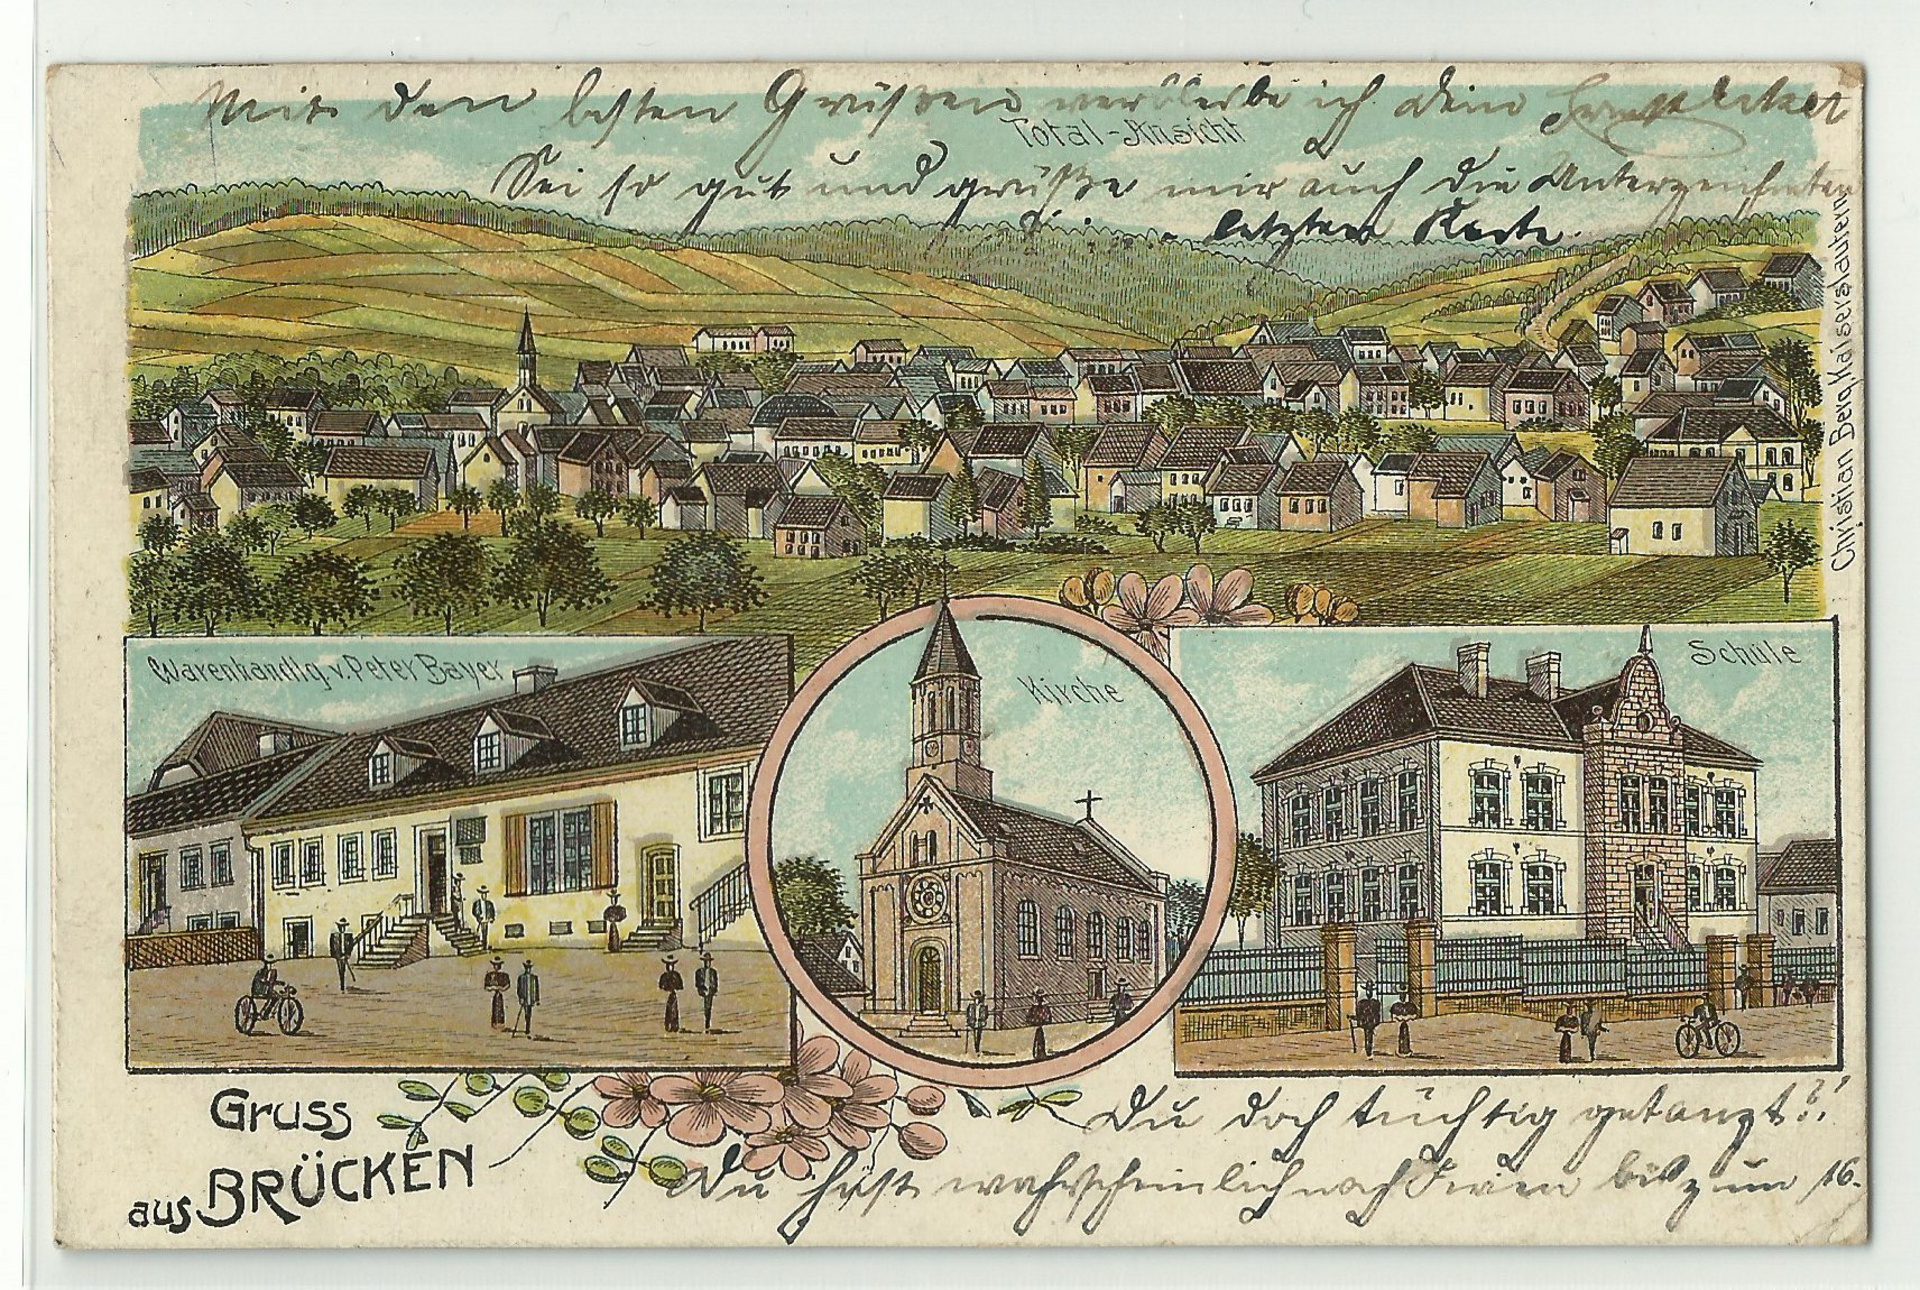 Mit den besten Grüßen verbleibe ich dein
Total-Ansicht
Sei so gut und grüße mir auch die Unterzeichneten
letzten Karte.
Christian Berg, Kaiserslautern
Warenhandlg. v. Peter Bayer
Kirche
Schule
Gruss
aus BRÜCKEN
Du doch tüchtig getanzt?!
Du hast wahrscheinlich noch Ferien bis zum 16.